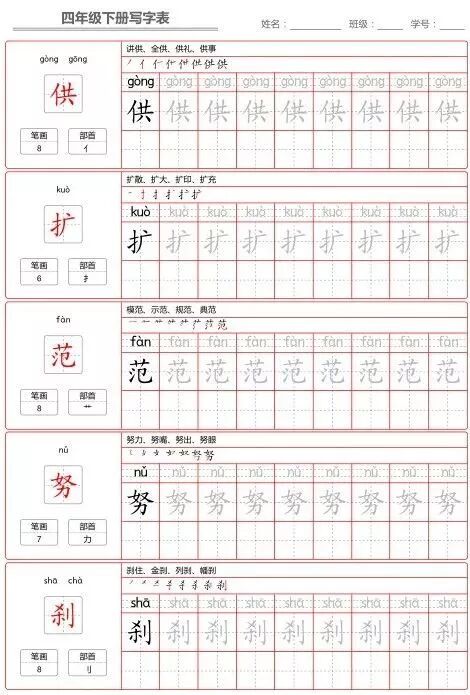 四年级下册写字表
姓名： 班级： 学号：
gòng gōng
供
笔画 部首
8 亻
讲供、全供、供礼、供事
gòng gòng gòng gòng gòng gòng gòng gòng gòng
供 供 供 供 供 供 供 供 供
kuò
扩
笔画 部首
6 扌
扩散、扩大、扩印、扩充
kuò kuò kuò kuò kuò kuò kuò kuò kuò
扩 扩 扩 扩 扩 扩 扩 扩 扩
fàn
范
笔画 部首
8 艹
模范、示范、规范、典范
fàn fàn fàn fàn fàn fàn fàn fàn fàn
范 范 范 范 范 范 范 范 范
nǔ
努
笔画 部首
7 力
努力、努嘴、努出、努眼
nǔ nǔ nǔ nǔ nǔ nǔ nǔ nǔ nǔ
努 努 努 努 努 努 努 努 努
shā chà
刹
笔画 部首
8 刂
刹住、金刹、列刹、幡刹
shā shā shā shā shā shā shā shā shā
刹 刹 刹 刹 刹 刹 刹 刹 刹